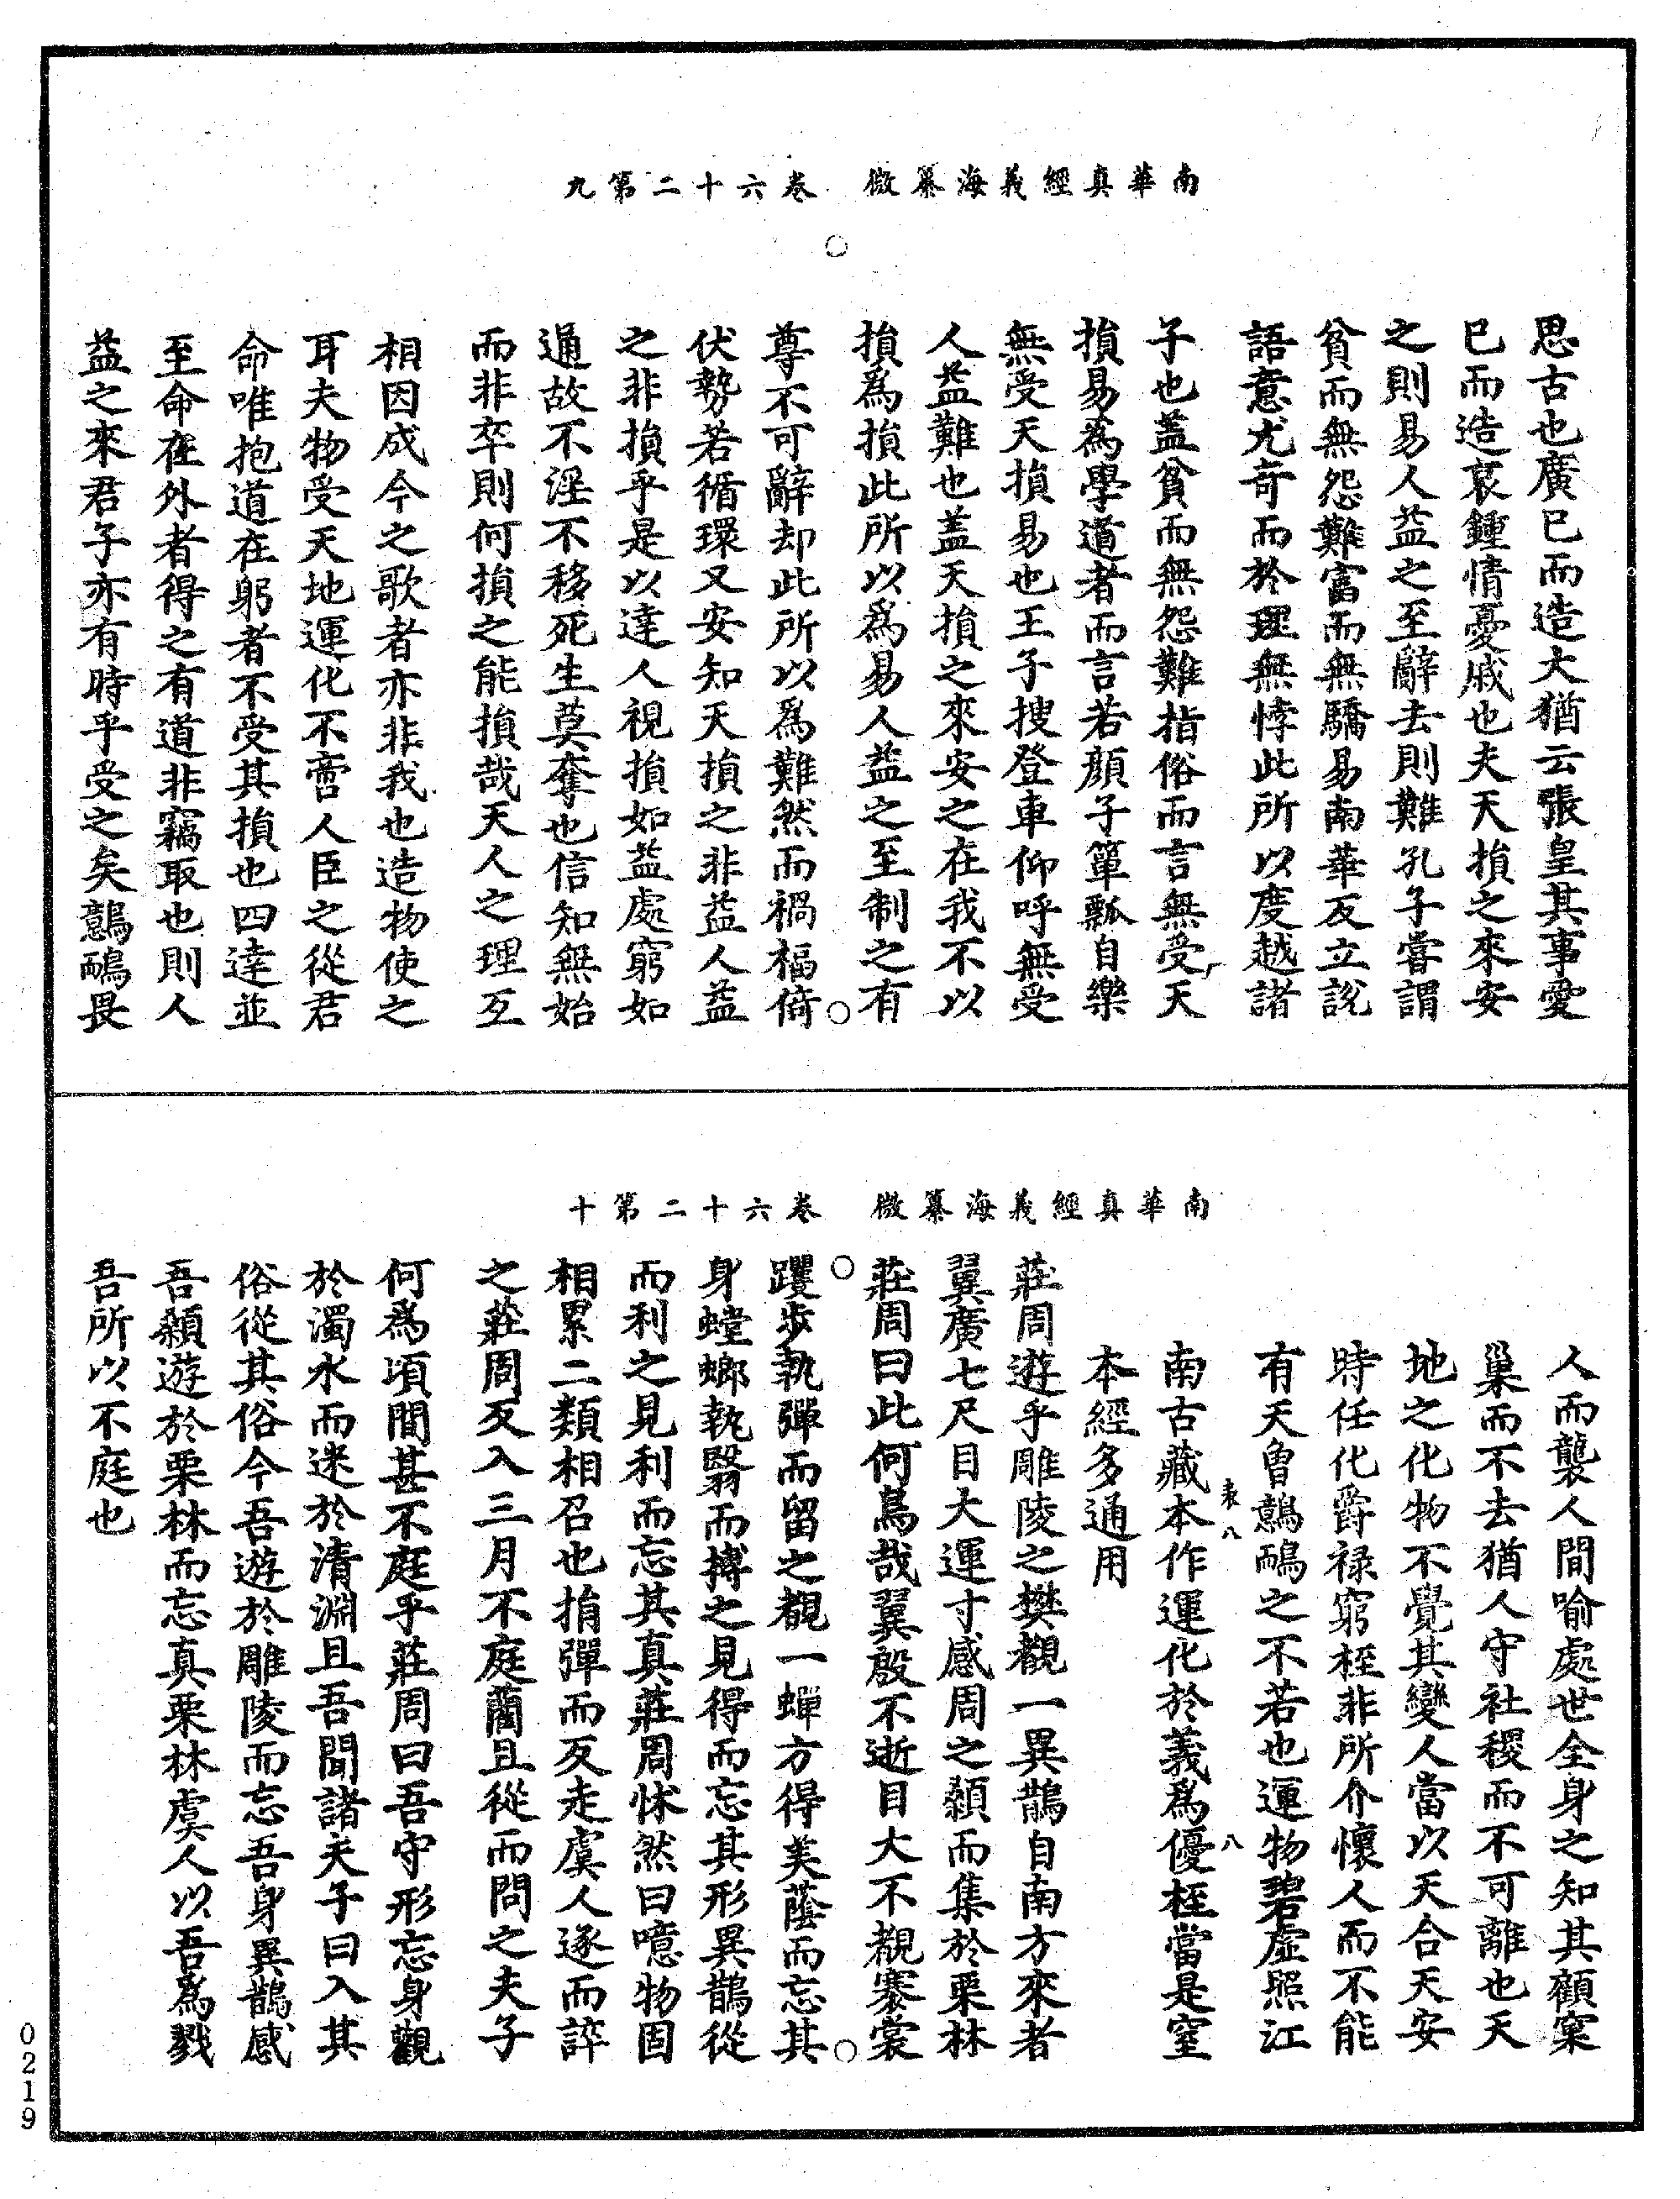 南華真經義海纂微　卷六十二第九
思古也廣已而造大猶云張皇其事愛
已而造哀鍾情憂戚也夫天損之來安
之則易人益之至辭去則難孔子嘗謂
貧而無怨難富而無驕易南華反立說
語意尤奇而於理無悖此所以度越諸
子也盖貧而無怨難指俗而言無受天
損易為學道者而言若顏子簞瓢自樂
無受天損易也王子搜登車仰呼無受
人益難也盖天損之來安之在我不以
損為損此所以為易人益之至制之有
尊不可辭却此所以為難然而禍福倚
伏勢若循環又安知天損之非益人益
之非損乎是以達人視損如益處窮如
通故不淫不移死生莫奪也信知無始
而非卒則何損之能損哉天人之理互
相因成今之歌者亦非我也造物使之
耳夫物受天地運化不啻人臣之從君
命唯抱道在躬者不受其損也四達並
至命在外者得之有道非竊取也則人
益之來君子亦有時乎受之矣鷾鴯畏
南華真經義海纂微　卷六十二第十
人而襲人間喻處世全身之知其顧窠
巢而不去猶人守社稷而不可離也天
地之化物不覺其變人當以天合天安
時任化爵祿窮桎非所介懷人而不能
有天曾鷾鴯之不若也運物碧虛照江
表八　八
南古藏本作運化於義為優桎當是窒
本經多通用
莊周遊乎雕陵之樊覩一異鵲自南方來者
翼廣七尺目大運寸感周之顙而集於栗林
莊周曰此何鳥哉翼殷不逝目大不覩褰裳
躩步執彈而留之覩一蟬方得美蔭而忘其
身螳螂執翳而搏之見得而忘其形異鵲從
而利之見利而忘其真莊周怵然曰噫物固
相累二類相召也捐彈而反走虞人逐而誶
之莊周反入三月不庭藺且從而問之夫子
何為頃間甚不庭乎莊周曰吾守形忘身觀
於濁水而迷於清淵且吾聞諸夫子曰入其
俗從其俗今吾遊於雕陵而忘吾身異鵲感
吾顙遊於栗林而忘真栗林虞人以吾為戮
吾所以不庭也
0219